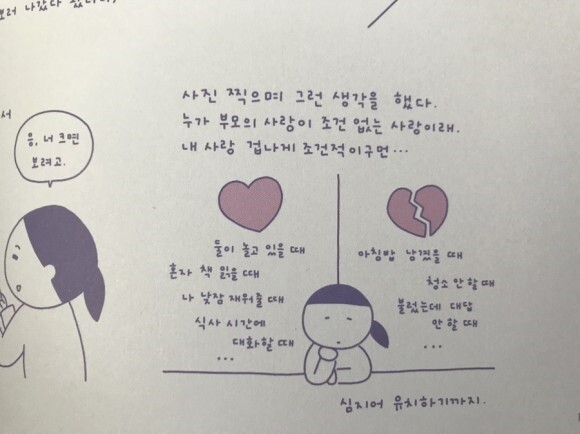 보러 나갔다
서
응, 너 크면
보려고.
사진 찍으며 그런 생각을 했다.
누가 부모의 사랑이 조건 없는 사랑이래.
내 사랑 겁나게 조건적이구먼…
둘이 놀고 있을 때
혼자 책 읽을 때
나 낮잠 재워줄 때
식사 시간에
대화할 때
…
아침밥 남겼을 때
청소 안 할 때
불렀는데 대답
안 할 때
…
심지어 유치하기까지.